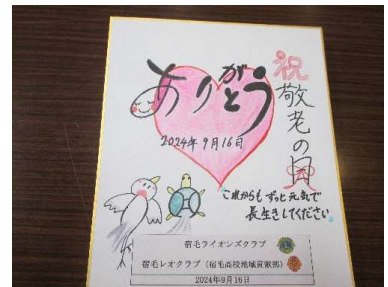 祝
敬老の日
ありがとう
2024年9月16日
これからもずっと元気で
長生きしてください
宿毛ライオンズクラブ
宿毛レオクラブ（宿毛高校地域貢献部）
2024年9月16日